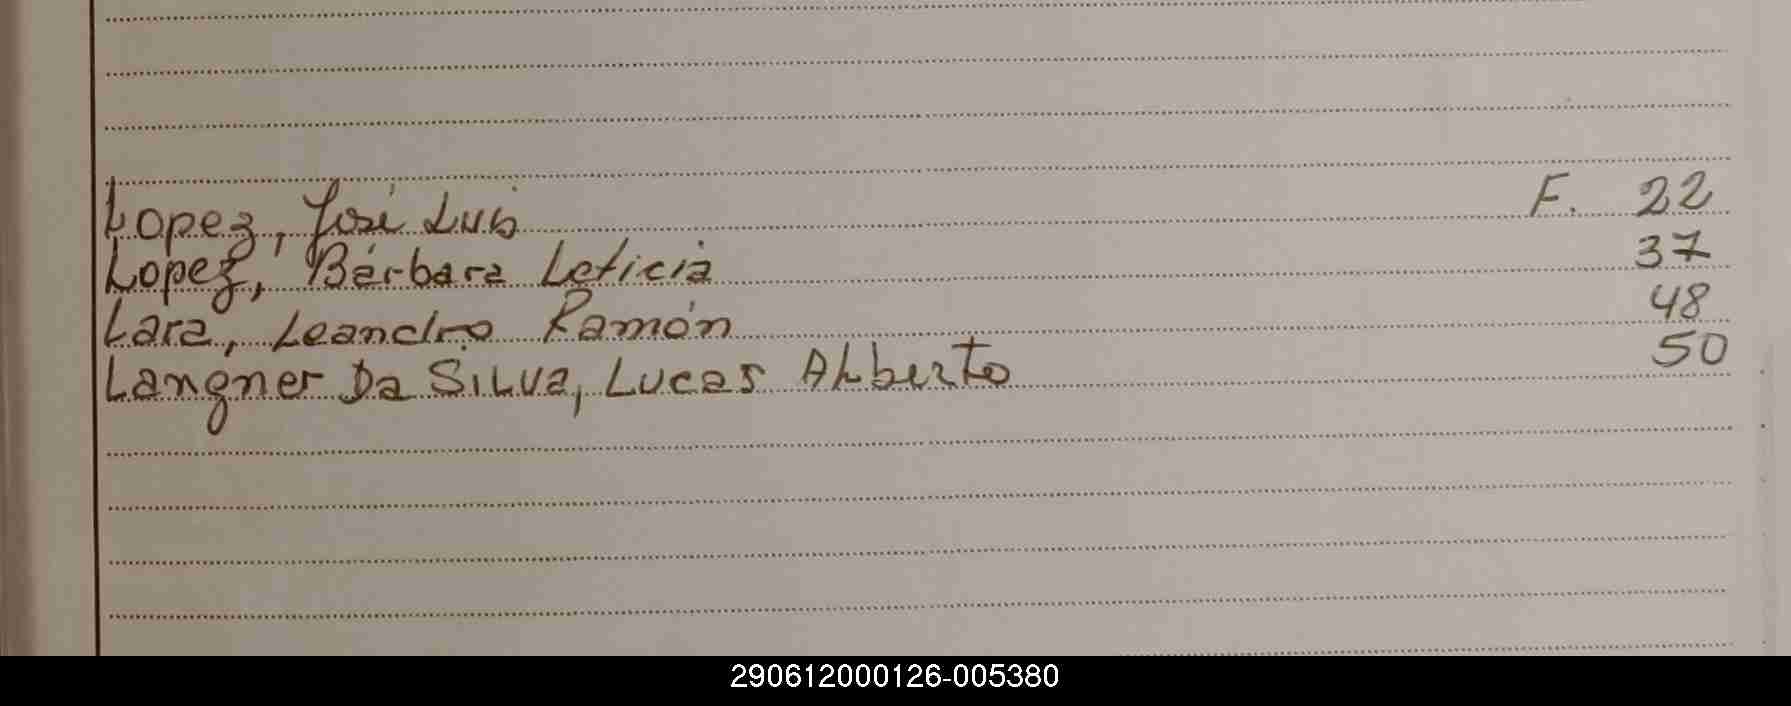 Lopez, José Luis F. 22
Lopez, Bárbara Leticia 37
Lara, Leandro Ramón 48
Langner Da Silva, Lucas Alberto 50
290612000126-005380